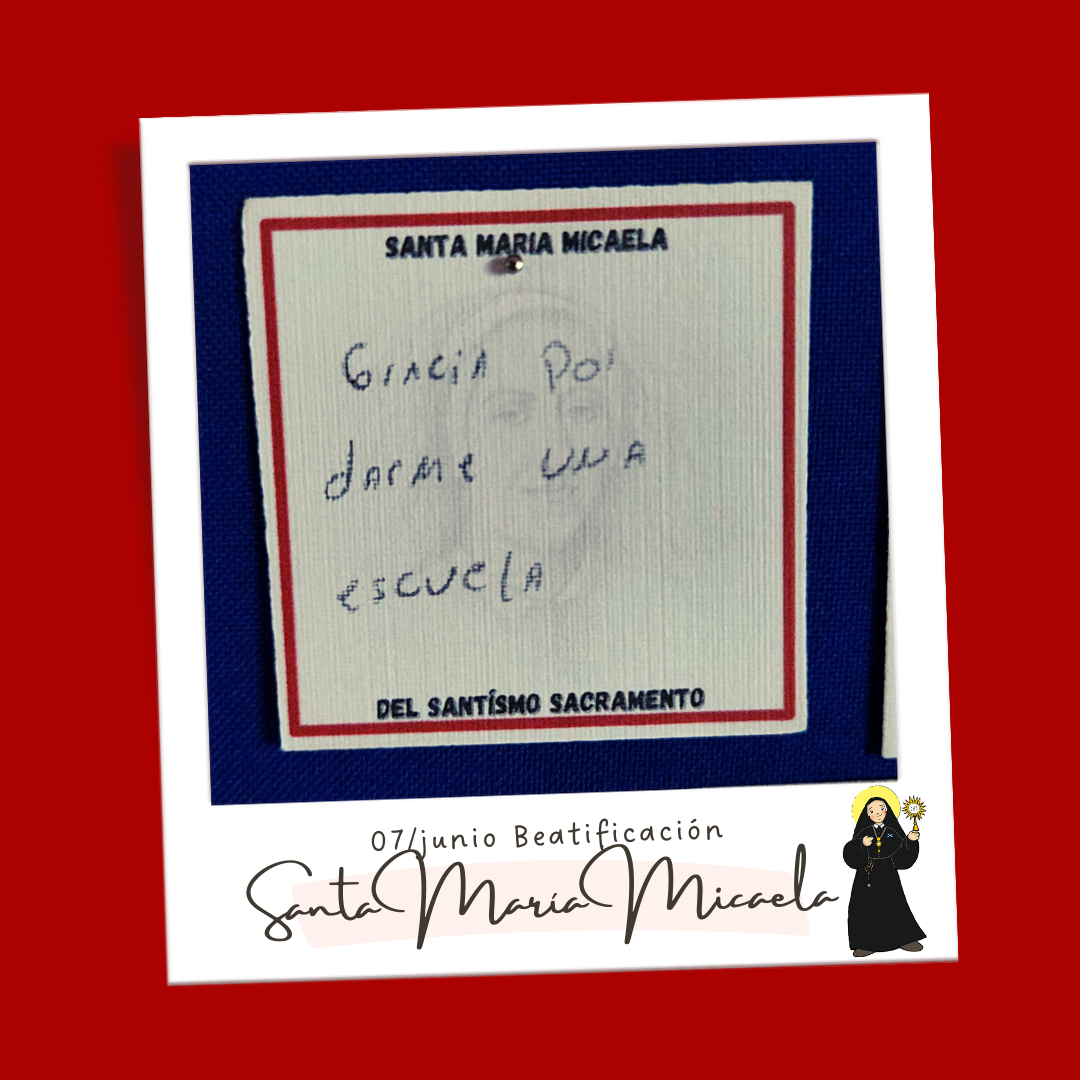 SANTA MARÍA MICAELA
Gracia por
darme una
escuela
DEL SANTÍSMO SACRAMENTO
07/junio Beatificación
Santa María Micaela